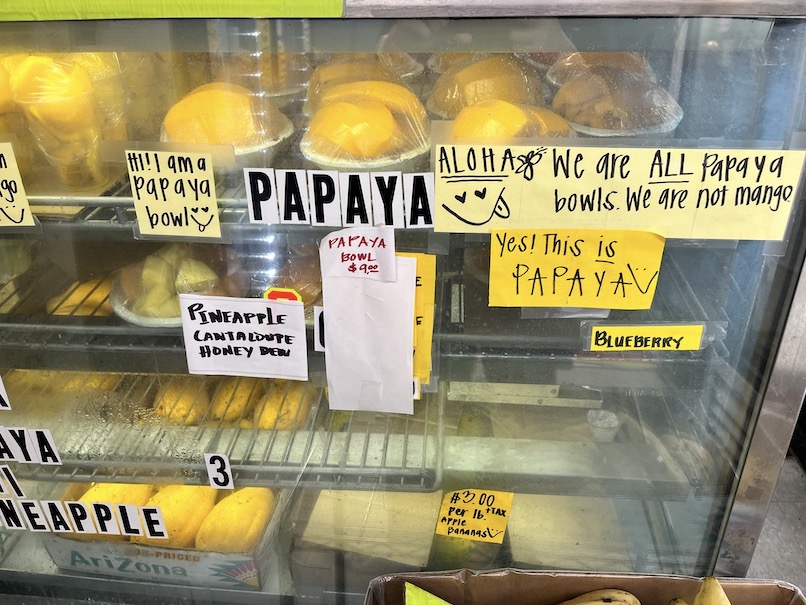 go
HI! I am a
papaya
bowl
PAPAYA
ALOHA We are ALL papaya
bowls. We are not mango.
Yes! This is
PAPAYA
PAPAYA
BOWL
$9.00
PINEAPPLE
CANTALOUPE
HONEY DEW
BLUEBERRY
AYA
3
I
NEAPPLE
$3.00
per lb. +TAX
Apple
Bananas
-PRICED
AriZona